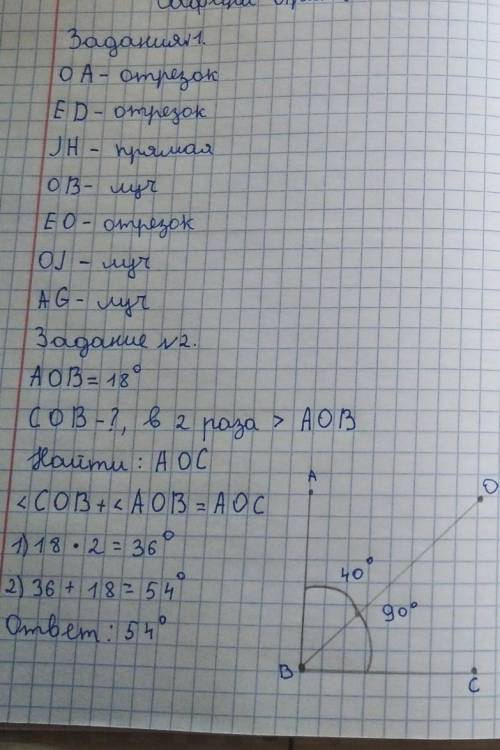 Задания №1.
OA - отрезок
ED - отрезок
JH - прямая
OB - луч
EO - отрезок
OJ - луч
AG - луч
Задание №2.
AOB = 18°
COB - ?, в 2 раза > AOB
Найти : AOC
<COB + <AOB = AOC
1) 18 · 2 = 36°
2) 36 + 18 = 54°
Ответ : 54°
A
O
40°
90°
B
C